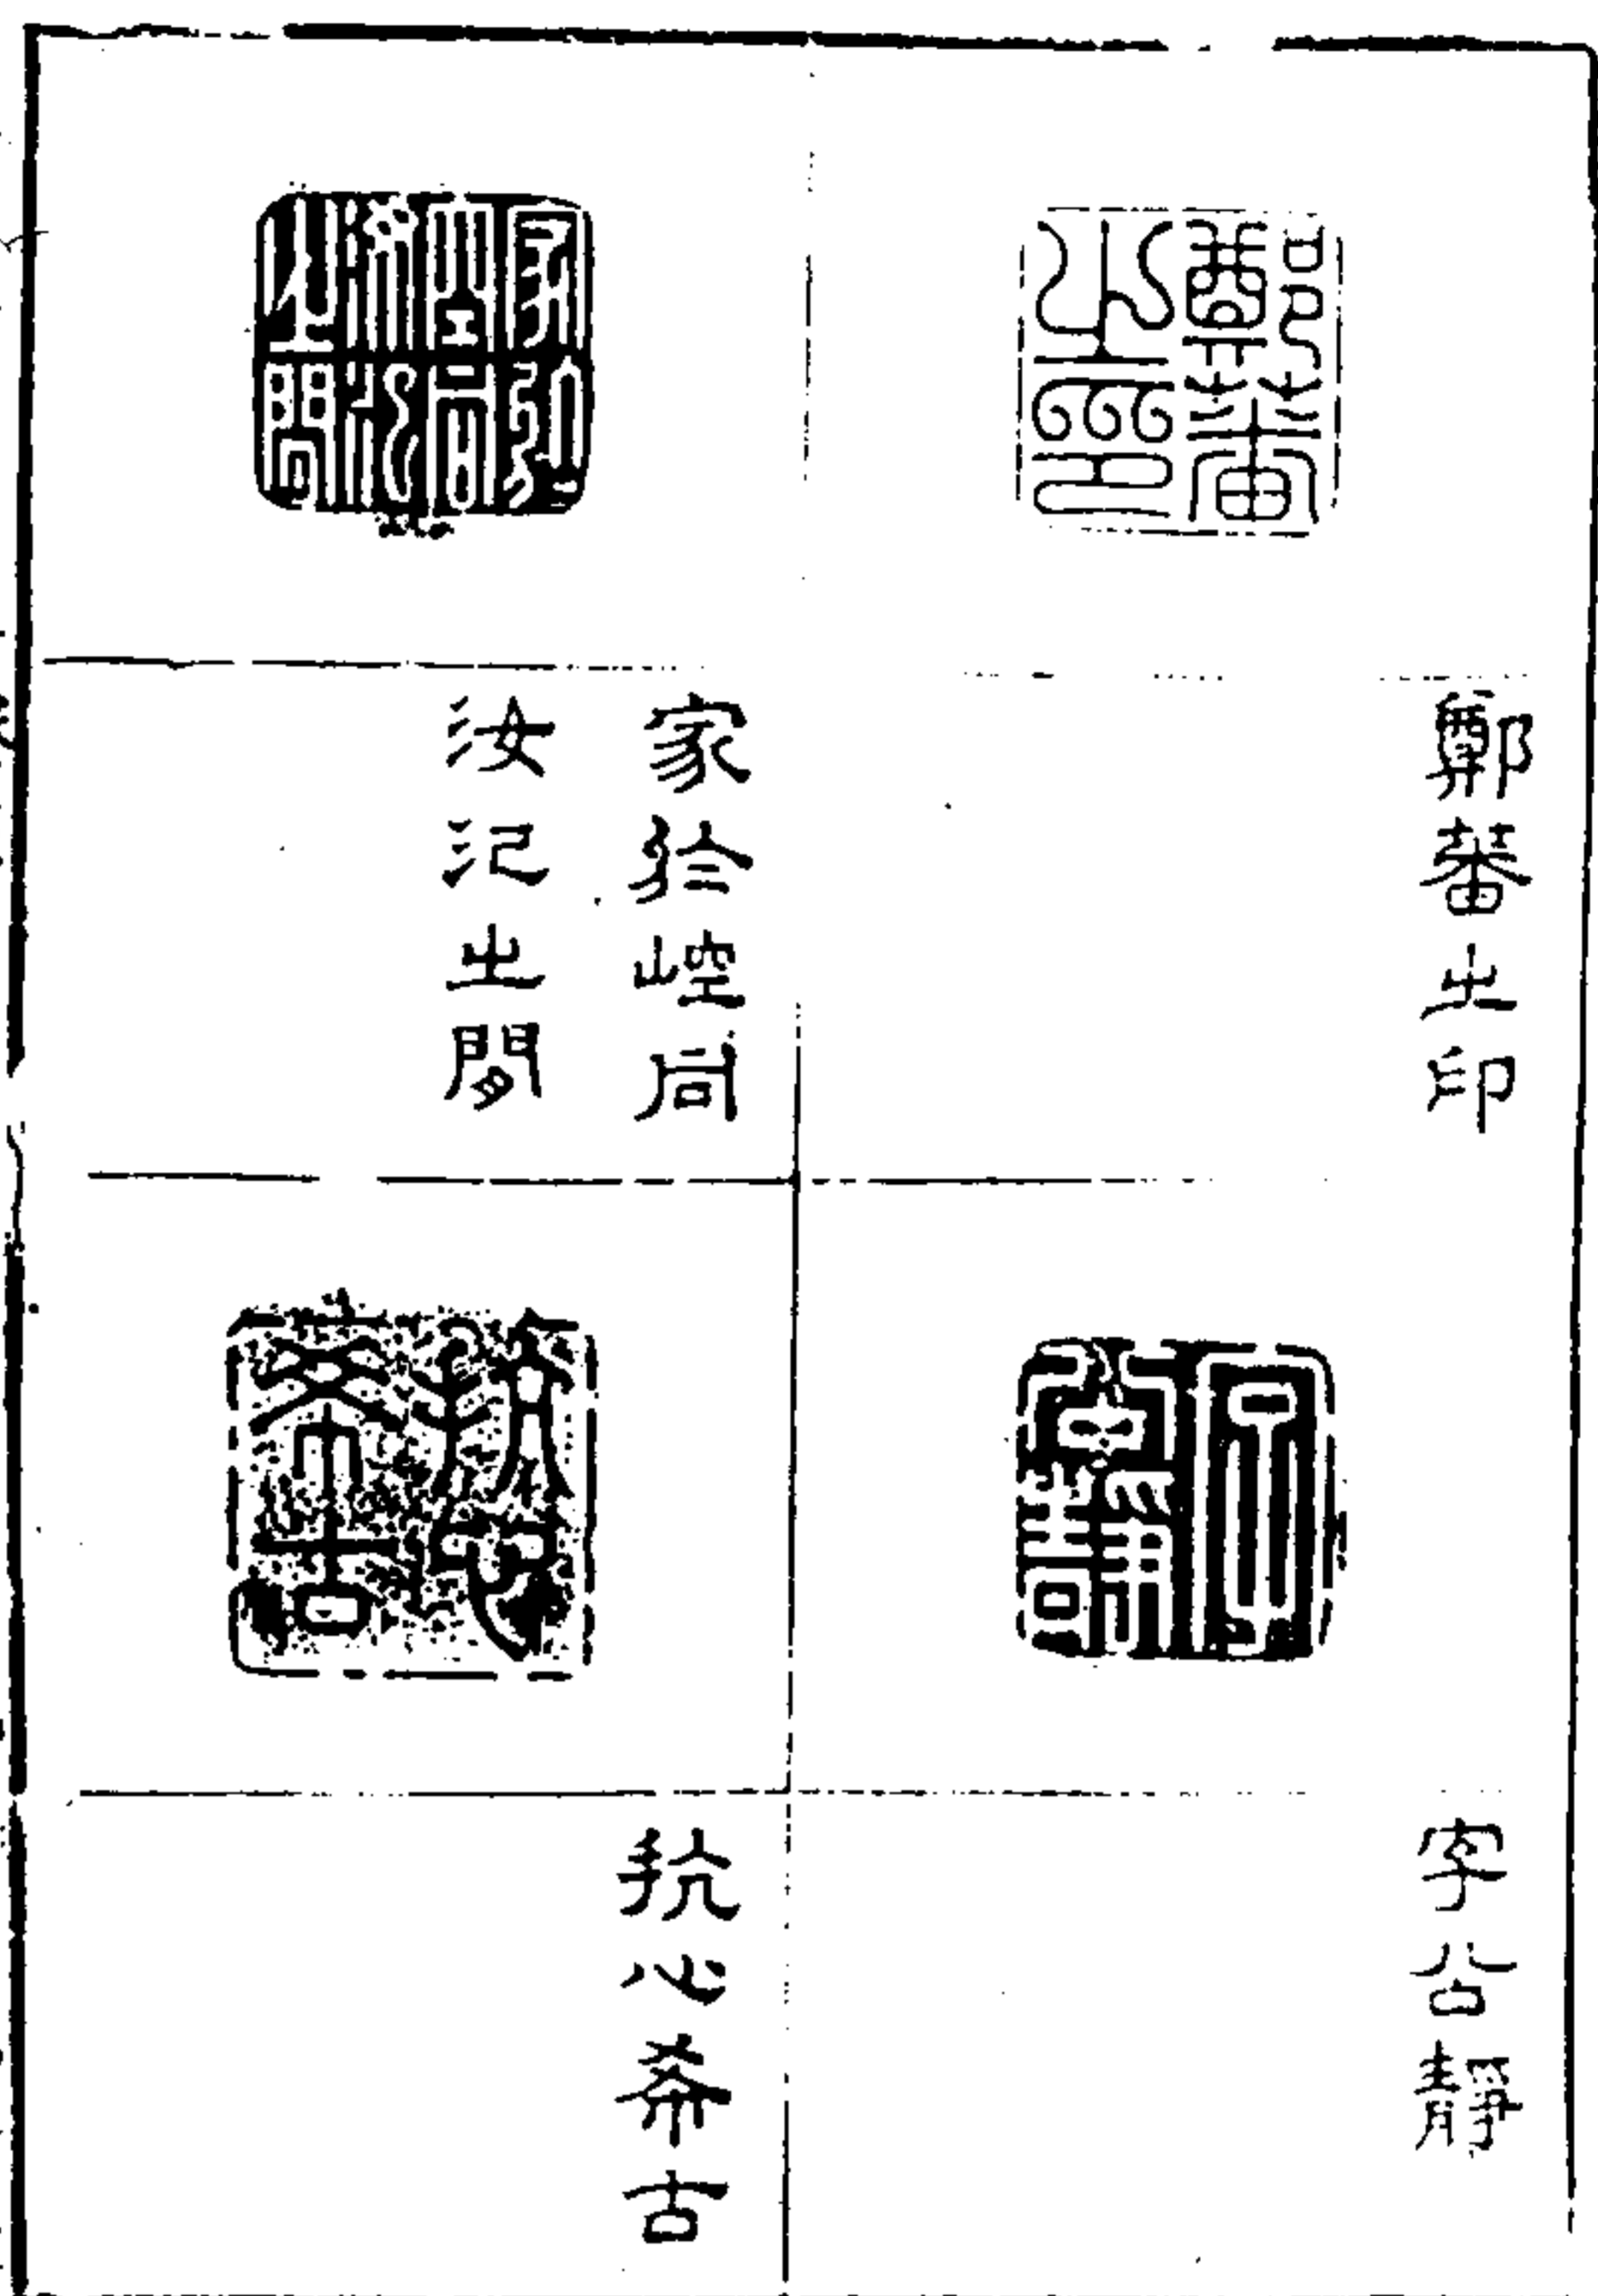 鄭蕃之印
家於崆峒
汝汜之間
字公靜
抗心希古